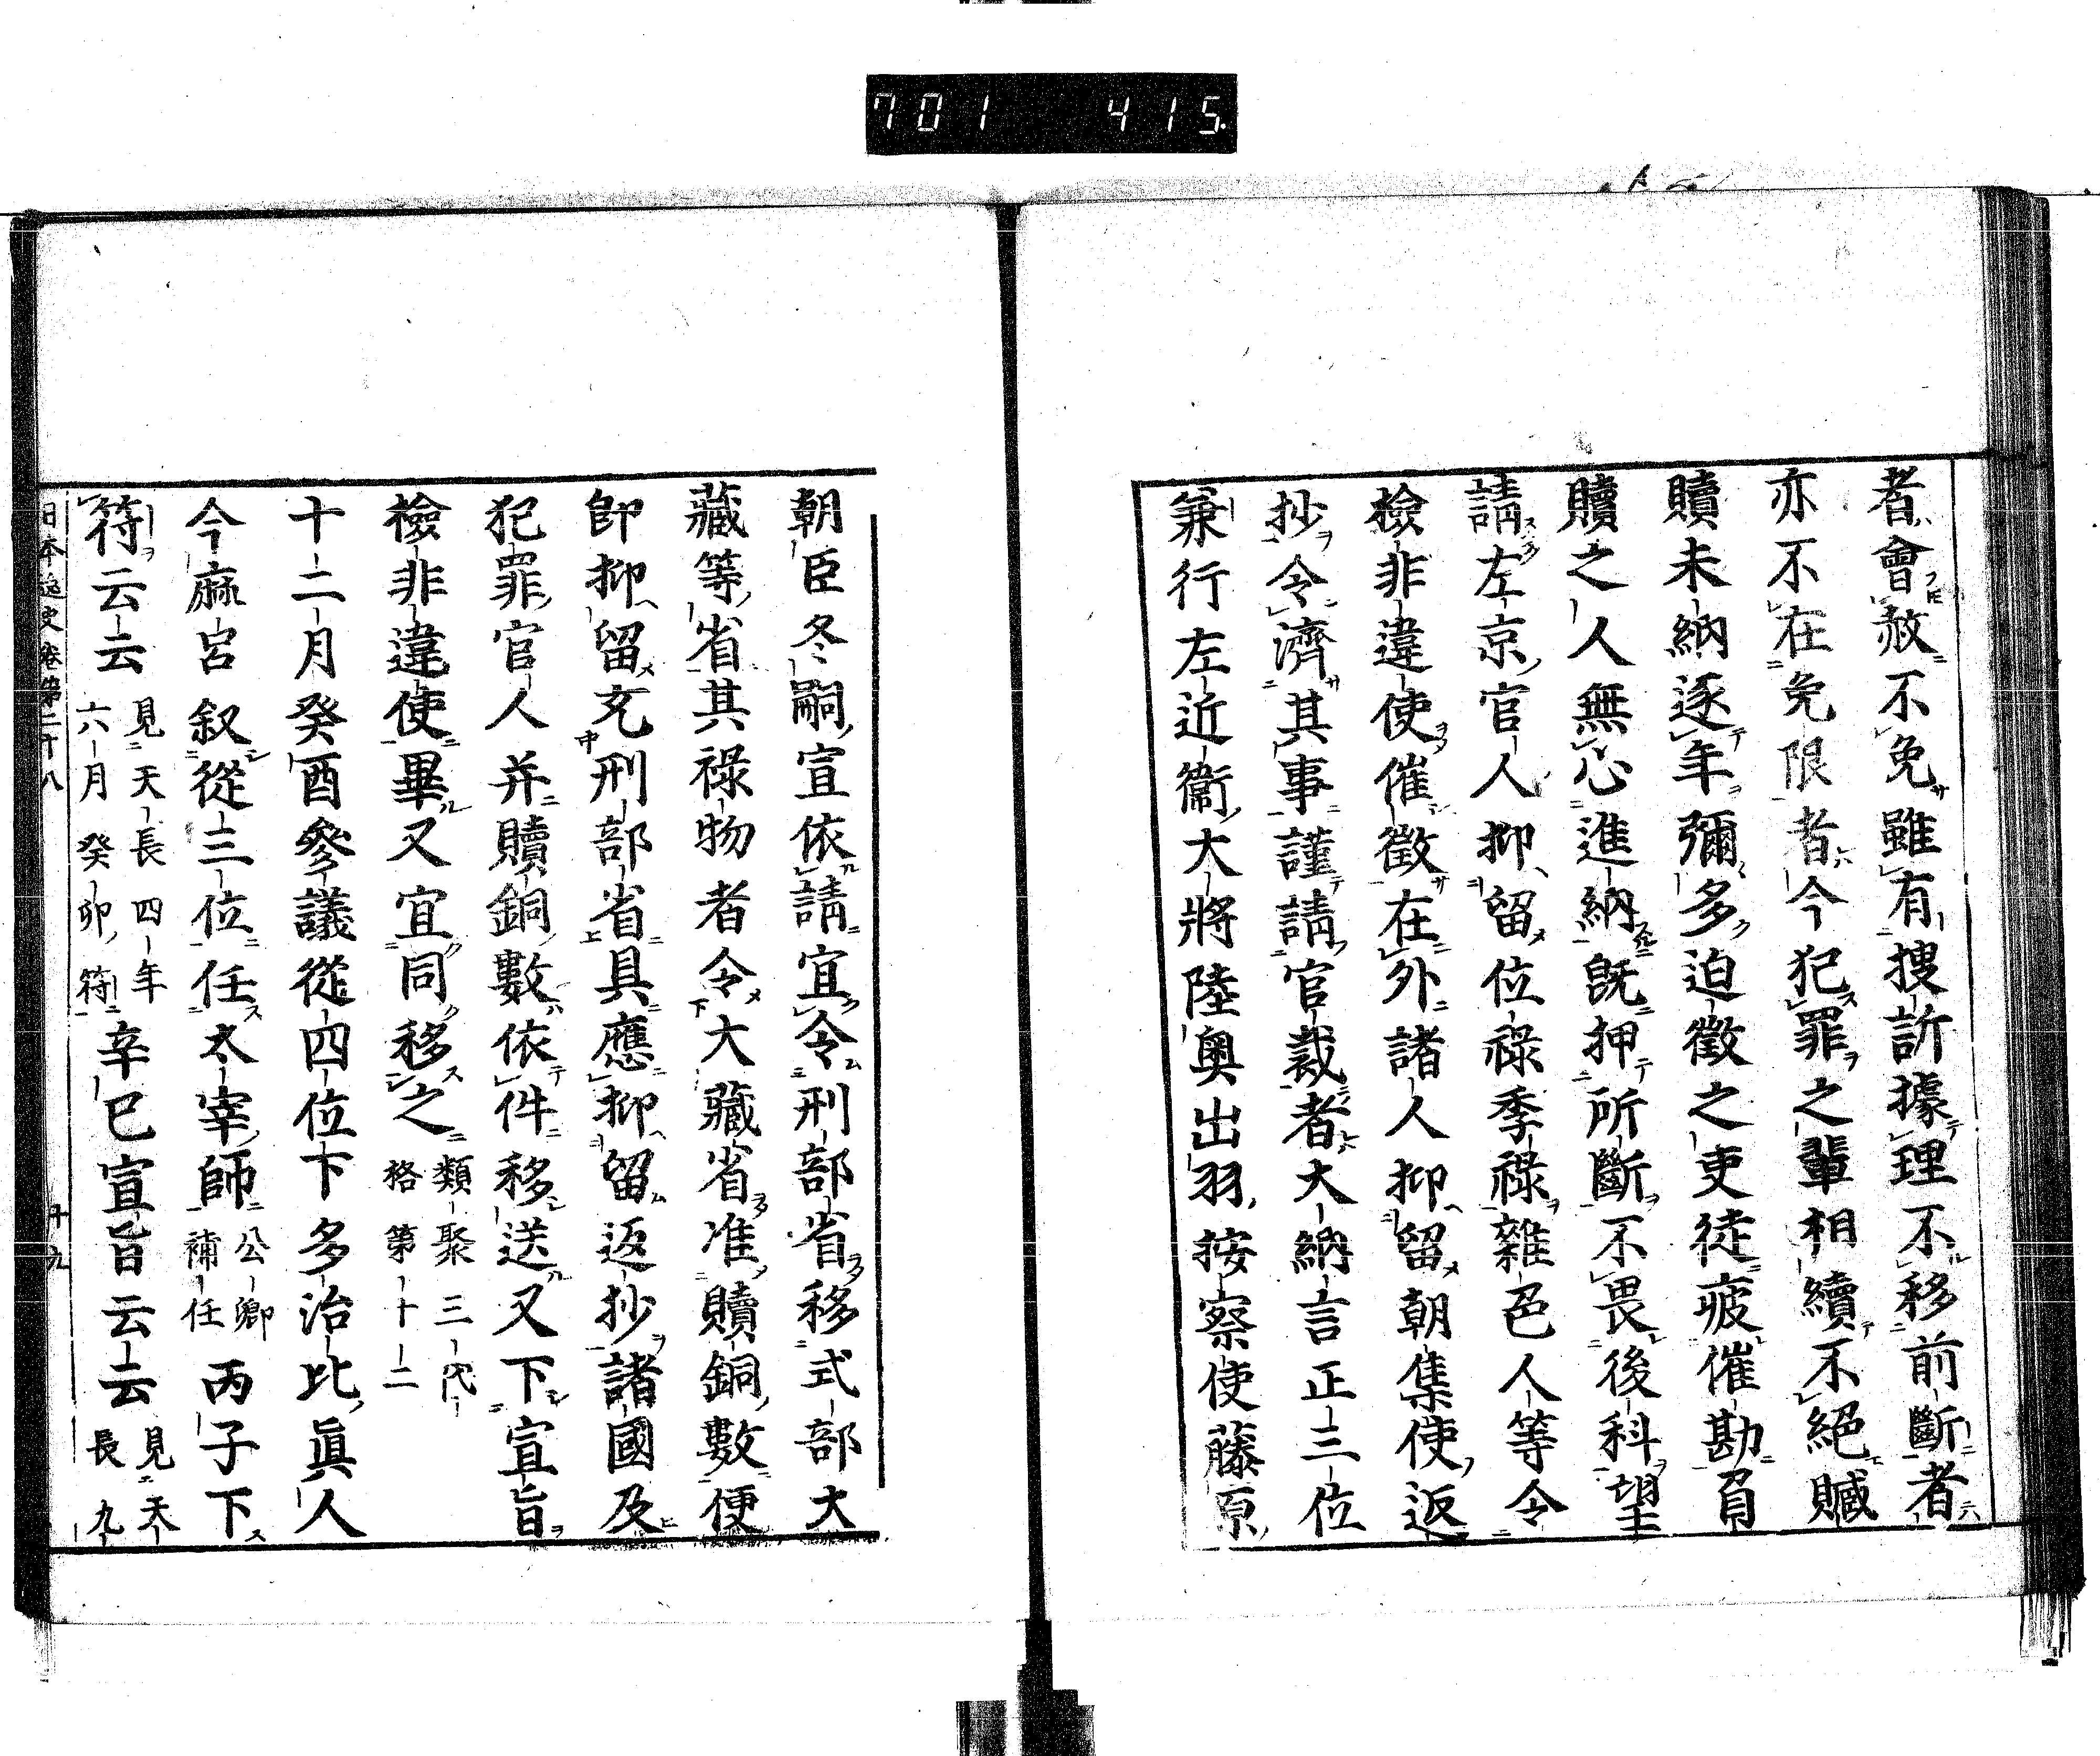 701 415
者會赦不免雖有捜訴據理不移前斷者
亦不在免限者今犯罪之輩相續不絕贓
贖未納逐年彌多迫徵之吏徒疲催勘負
贖之人無心進納既押所斷不畏後科望
請左京官人抑留位祿季祿雜色人等令
檢非違使催徵在外諸人抑留朝集使返
抄令濟其事謹請官裁者大納言正三位
兼行左近衞大將陸奧出羽按察使藤原
朝臣冬嗣宣依請宜令刑部省移式部大
藏等省其祿物者令大藏省准贖銅數便
即抑留充刑部省具應抑留返抄諸國及
犯罪官人并贖銅數依件移送又下宣旨
檢非違使畢又宜同移之類聚三代格第十二
十二月癸酉參議從四位下多治比眞人
今麻呂叙從三位任太宰師公卿補任丙子下
符云云見天長四年六月癸卯符辛巳宣旨云云見天長九
日本逸史卷第二十八 十九